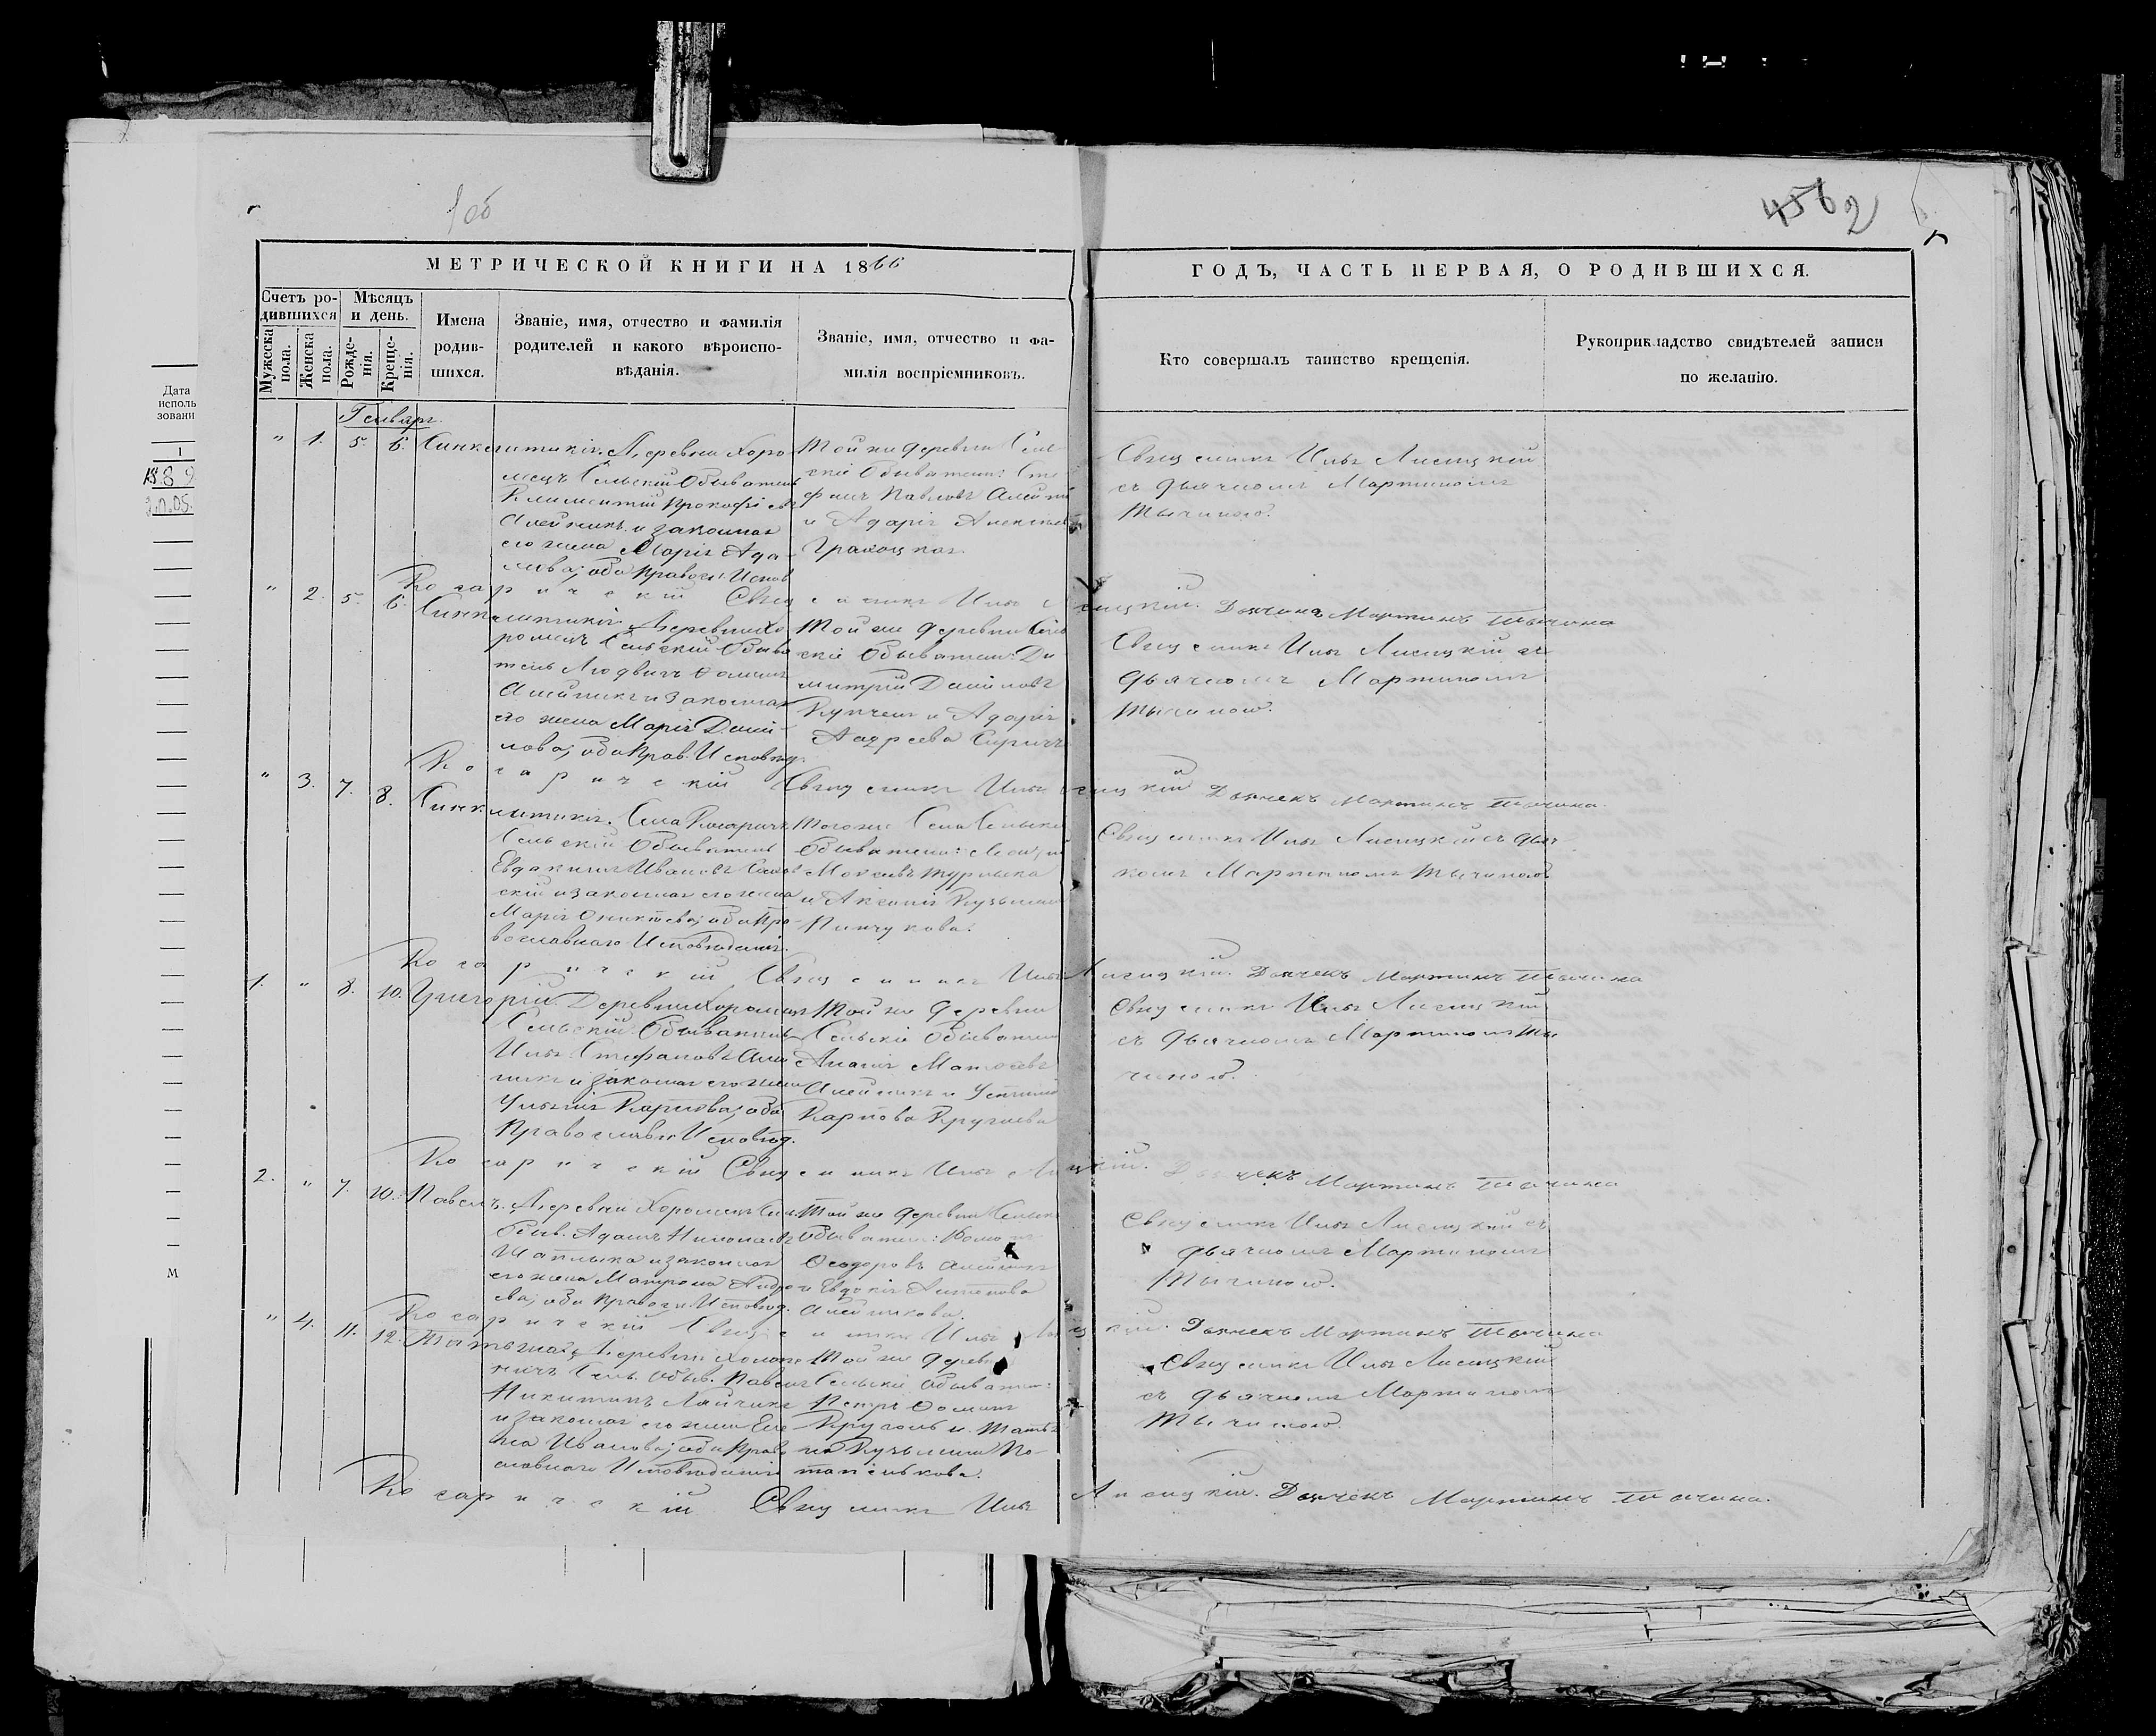 1об
4562
МЕТРИЧЕСКОЙ КНИГИ НА 1866
ГОДЪ, ЧАСТЬ ПЕРВАЯ, О РОДИВШИХСЯ.
Счетъ ро-
дившихся
Мужеска
пола.
Женска
пола.
Мѣсяцъ
и день.
Рожде-
нія.
Креще-
нія.
Имена
родив-
шихся.
Званіе, имя, отчество и фамилія
родителей и какого вѣроиспо-
вѣданія.
Званіе, имя, отчество и фа-
милія воспріемниковъ.
Кто совершалъ таинство крещенія.
Рукоприкладство свидѣтелей записи
по желанію.
Дата
исполь
зовани
1
М
Генварь.
" 1. 5. 6. Синклитикія.
Деревни Хоро
мецъ Сельскій Обыватель
Климентій Прокофіевъ
Алейникъ и законная
его жена Марія Ада-
мова; оба Правосл. Испов
Той же деревни Сель
скіе Обыватели: Сте
фанъ Павловъ Алейни
и Адарія
Священникъ Илья Лисицкій
съ дьячкомъ Мартиномъ
Тычиною.
Косаричскій Священникъ Илья Лисицкій. Дьячекъ Мартинъ Тычина
" 2. 5. 6. Синклитикія
Деревни Хо
ромецъ Сельскій Обыва
тель Людвигъ Ѳоминъ
Алейникъ и законная
его жена Марія Дани-
лова; оба Прав. Исповѣд.
Той же деревни Сель
скіе Обыватели: Ди
митрій Даніиловъ
и Адарія
Андреева
Священникъ Илья Лисицкій съ
дьячкомъ Мартиномъ
Тычиною.
Косаричскій Священникъ Илья Лисицкій Дьячекъ Мартинъ Тычина.
" 3. 7. 8. Синклитикія.
Села Косаричъ
Сельскій Обыватель
Евдакимъ Ивановъ
скій и законная его жена
Марія; оба Пра-
вославнаго Исповѣданія.
Того же Села Сельскіе
Обыватели:
и Аксинія Кузьмина
Пинчукова.
Священникъ Илья Лисицкій съ дья
комъ Мартиномъ Тычиною.
Косаричскій Священникъ Илья Лисицкій. Дьячекъ Мартинъ Тычина
1. " 8. 10. Григорій.
Деревни Хоромецъ
Сельскій Обыватель
Илья Стефановъ Алей
никъ и законная его жена
Ульянія Карпова; оба
Православн Исповѣд.
Той же деревни
Сельскіе Обыватели
Матѳеевъ
Алейникъ и Устинія
Карпова
Священникъ Илья Лисицкій
съ дьячкомъ Мартиномъ Ты
чиною.
Косаричскій Священникъ Илья Лисицкій. Дьячекъ Мартинъ Тычина
2. " 7. 10. Павелъ.
Деревни Хоромецъ Сель.
Обыв. Адамъ
и законная
его жена Матрона Андре
ева; оба Правосл. Исповѣд.
Той же деревни Сельскіе
обыватели:
Ѳеодоровъ Алейникъ
и Евдокія Антонова
Алейникова.
Священникъ Илья Лисицкій съ
дьячкомъ Мартиномъ
Тычиною.
Косаричскій Священникъ Илья Лисицкій. Дьячекъ Мартинъ Тычина
" 4. 11. 12. Татьяна.
Деревни
Сель. Обыв. Павелъ
Никитинъ
и законная его жена Еле
на Иванова; оба Право
славнаго Исповѣданія
Той же деревни
Сельскіе Обыватели:
Петръ Ѳоминъ
и Татья
на Кузьмина По
тапенькова.
Священникъ Илья Лисицкій
съ дьячкомъ Мартиномъ
Тычиною.
Косаричскій Священникъ Илья Лисицкій. Дьячекъ Мартинъ Тычина.